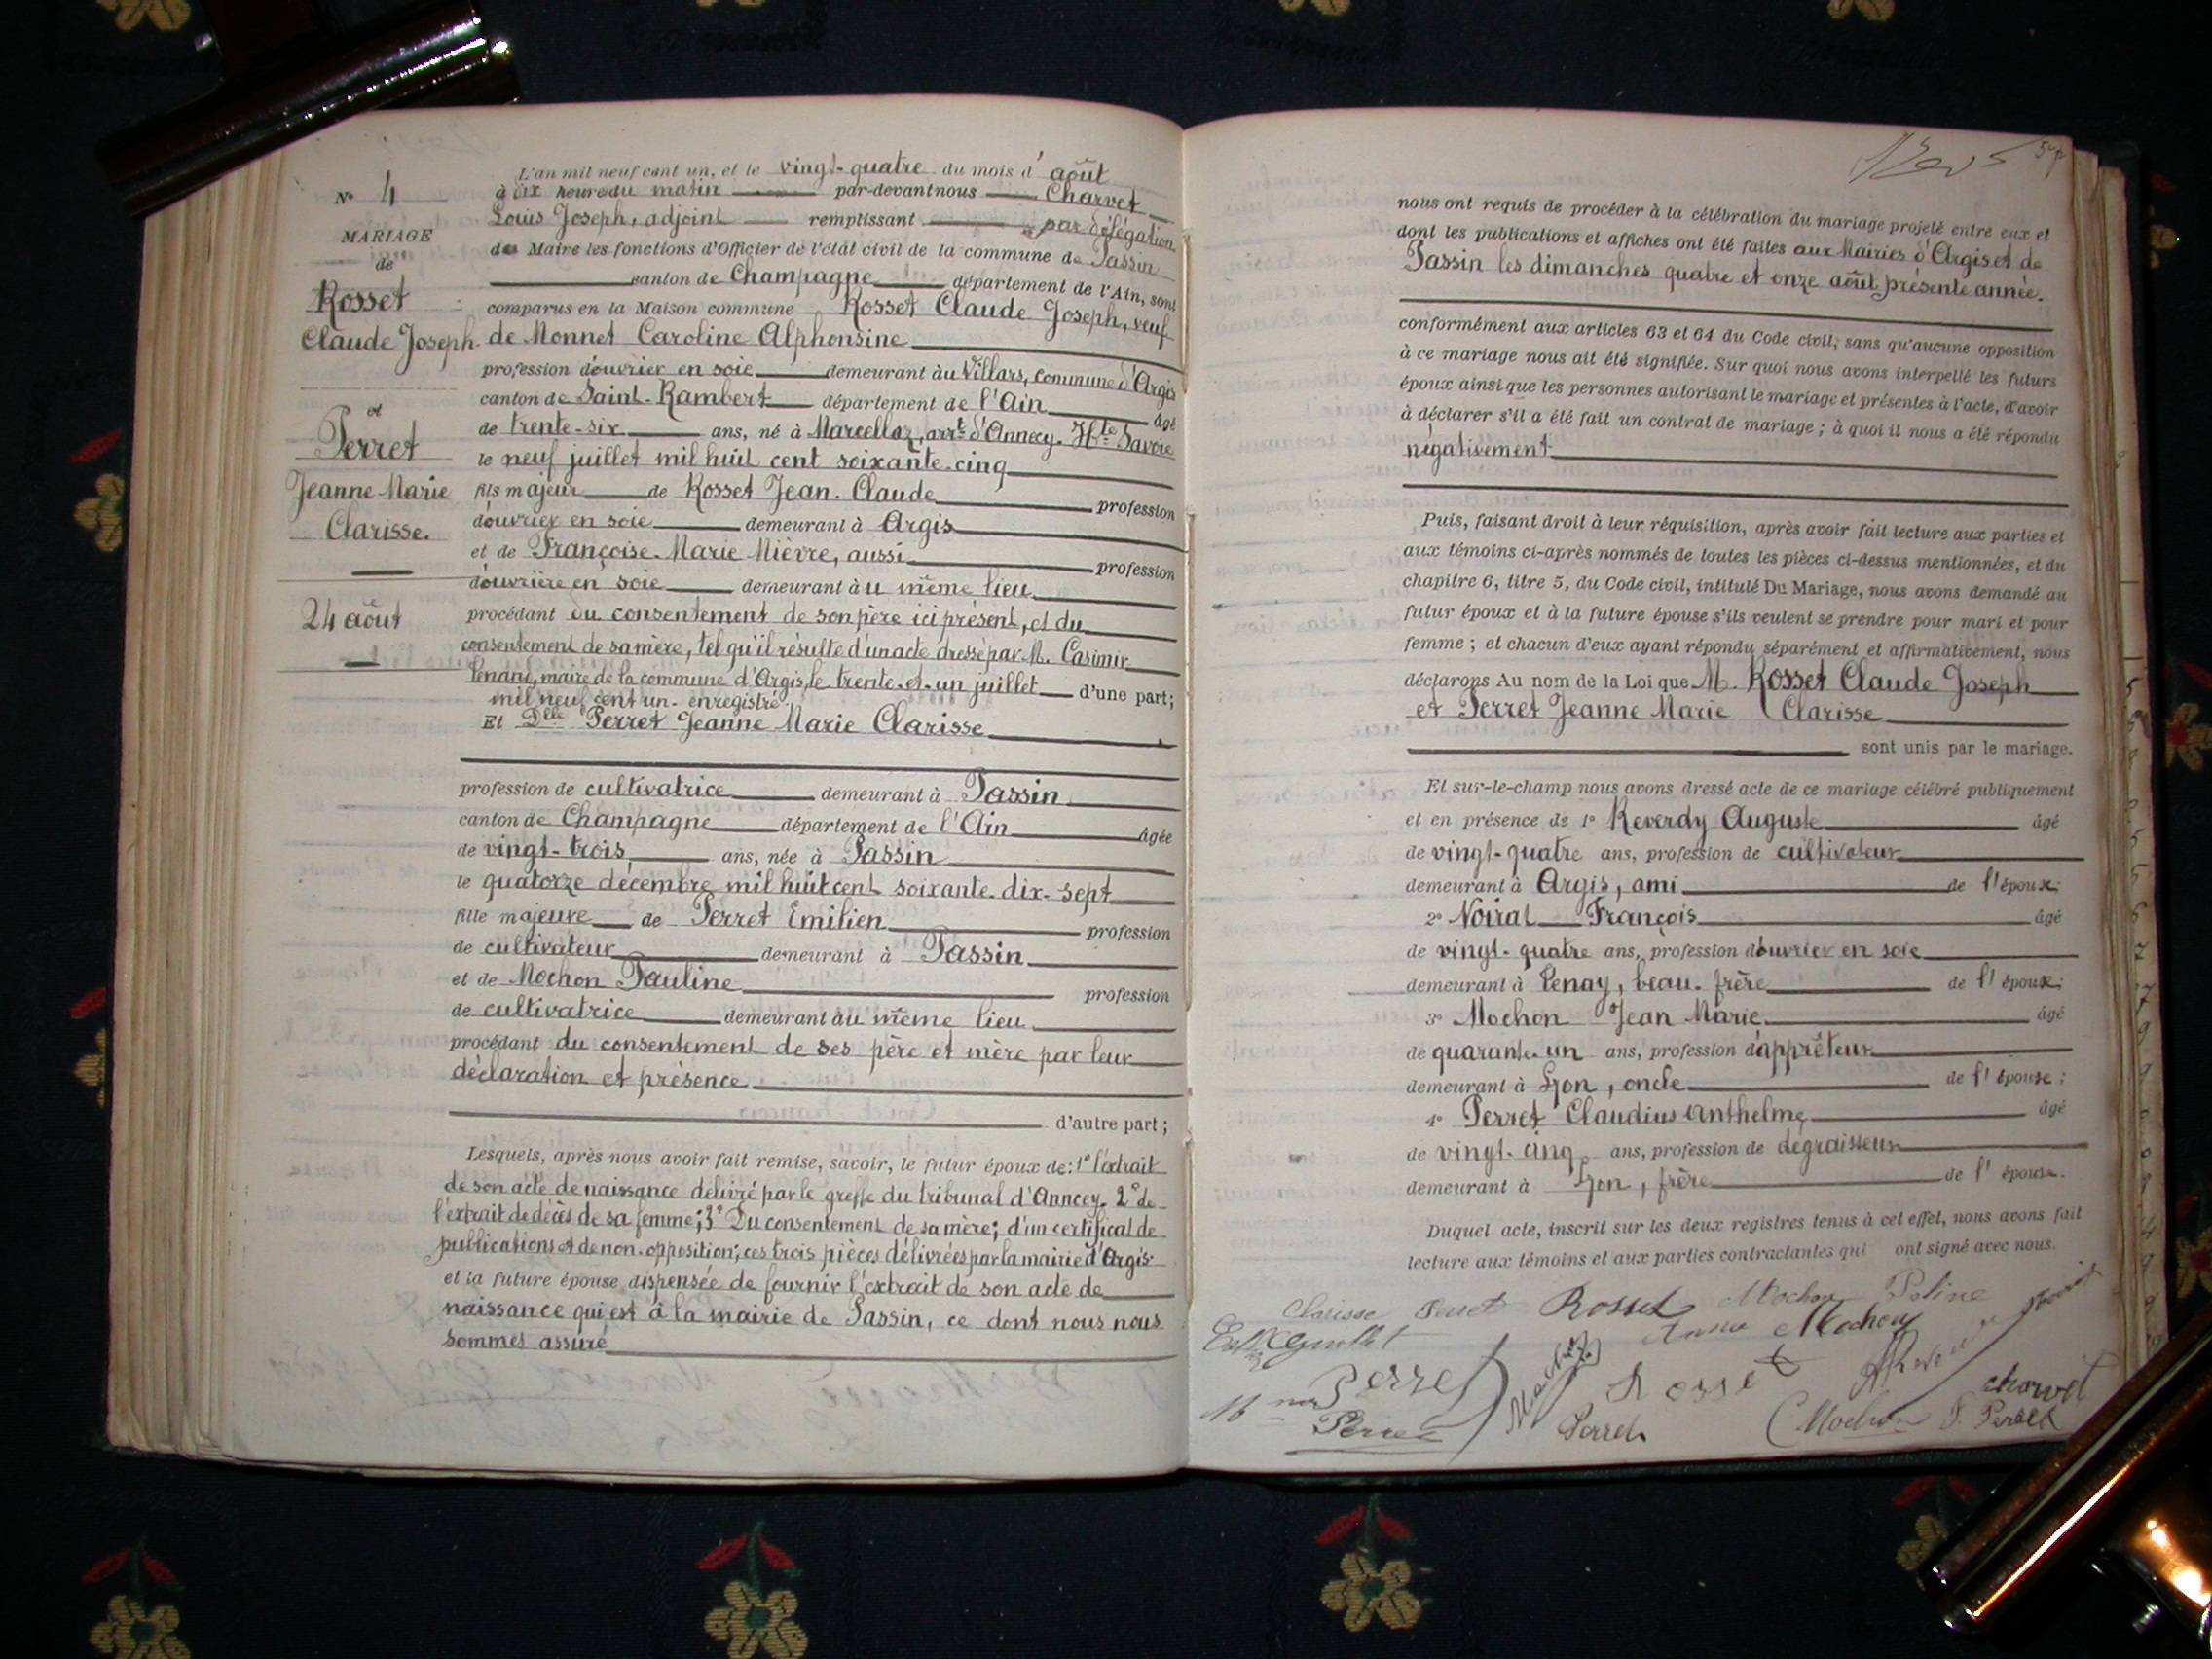 N° 4
MARIAGE
de
Rosset
Claude Joseph.
et
Perret
Jeanne Marie
Clarisse.
24 août
L'an mil neuf cent un, et le vingt-quatre du mois d'août
à dix heure du matin par-devant nous Charvet
Louis Joseph, adjoint remplissant par délégation
du Maire les fonctions d'Officier de l'état civil de la commune de Passin
canton de Champagne département de l'Ain, sont
comparus en la Maison commune Rosset Claude Joseph, veuf
de Monnet Caroline Alphonsine
profession d'ouvrier en soie demeurant au Villars, commune d'Argis
canton de Saint-Rambert département de l'Ain âgé
de trente-six ans, né à Marcellaz, arrt d'Annecy. Hte Savoie
le neuf juillet mil huit cent soixante-cinq
fils majeur de Rosset Jean-Claude profession
d'ouvrier en soie demeurant à Argis
et de Françoise-Marie Mièvre, aussi profession
d'ouvrière en soie demeurant au même lieu
procédant du consentement de son père ici présent, et du
consentement de sa mère, tel qu'il résulte d'un acte dressé par M. Casimir
maire de la commune d'Argis, le trente-et-un juillet d'une part;
mil neuf cent un. enregistré
Et Dlle Perret Jeanne Marie Clarisse
profession de cultivatrice demeurant à Passin
canton de Champagne département de l'Ain âgée
de vingt-trois ans, née à Passin
le quatorze décembre mil huit cent soixante-dix-sept
fille majeure de Perret Emilien profession
de cultivateur demeurant à Passin
et de Mochon Pauline profession
de cultivatrice demeurant au même lieu
procédant du consentement de ses père et mère par leur
déclaration et présence
d'autre part;
Lesquels, après nous avoir fait remise, savoir, le futur époux de: 1° l'extrait
de son acte de naissance délivré par le greffe du tribunal d'Anncey. 2° de
l'extrait de décès de sa femme; 3° Du consentement de sa mère; d'un certificat de
publications et de non-opposition; ces trois pièces délivrées par la mairie d'Argis
et la future épouse dispensée de fournir l'extrait de son acte de
naissance qui est à la mairie de Passin, ce dont nous nous
sommes assuré
57
nous ont requis de procéder à la célébration du mariage projeté entre eux et
dont les publications et affiches ont été faites aux Mairies d'Argis et de
Passin les dimanches quatre et onze août présente année.
conformément aux articles 63 et 64 du Code civil; sans qu'aucune opposition
à ce mariage nous ait été signifiée. Sur quoi nous avons interpellé les futurs
époux ainsi que les personnes autorisant le mariage et présentes à l'acte, d'avoir
à déclarer s'il a été fait un contrat de mariage; à quoi il nous a été répondu
négativement
Puis, faisant droit à leur réquisition, après avoir fait lecture aux parties et
aux témoins ci-après nommés de toutes les pièces ci-dessus mentionnées, et du
chapitre 6, titre 5, du Code civil, intitulé Du Mariage, nous avons demandé au
futur époux et à la future épouse s'ils veulent se prendre pour mari et pour
femme; et chacun d'eux ayant répondu séparément et affirmativement, nous
déclarons Au nom de la Loi que M. Rosset Claude Joseph
et Perret Jeanne Marie Clarisse
sont unis par le mariage.
Et sur-le-champ nous avons dressé acte de ce mariage célébré publiquement
et en présence de 1° Reverdy Auguste âgé
de vingt-quatre ans, profession de cultivateur
demeurant à Argis, ami de l'époux;
2° Noiral François âgé
de vingt-quatre ans, profession d'ouvrier en soie
demeurant à Tenay, beau-frère de l'époux;
3° Mochon Jean Marie âgé
de quarante-un ans, profession d'apprêteur
demeurant à Lyon, oncle de l'épouse;
4° Perret Claudius Anthelme âgé
de vingt-cinq ans, profession de dégraisseur
demeurant à Lyon, frère de l'épouse.
Duquel acte, inscrit sur les deux registres tenus à cet effet, nous avons fait
lecture aux témoins et aux parties contractantes qui ont signé avec nous.
Clarisse Perret Rosset Mochon Poline
Mochon
Perret Rosset Charvet
Perret Perret Mochon J. Perret